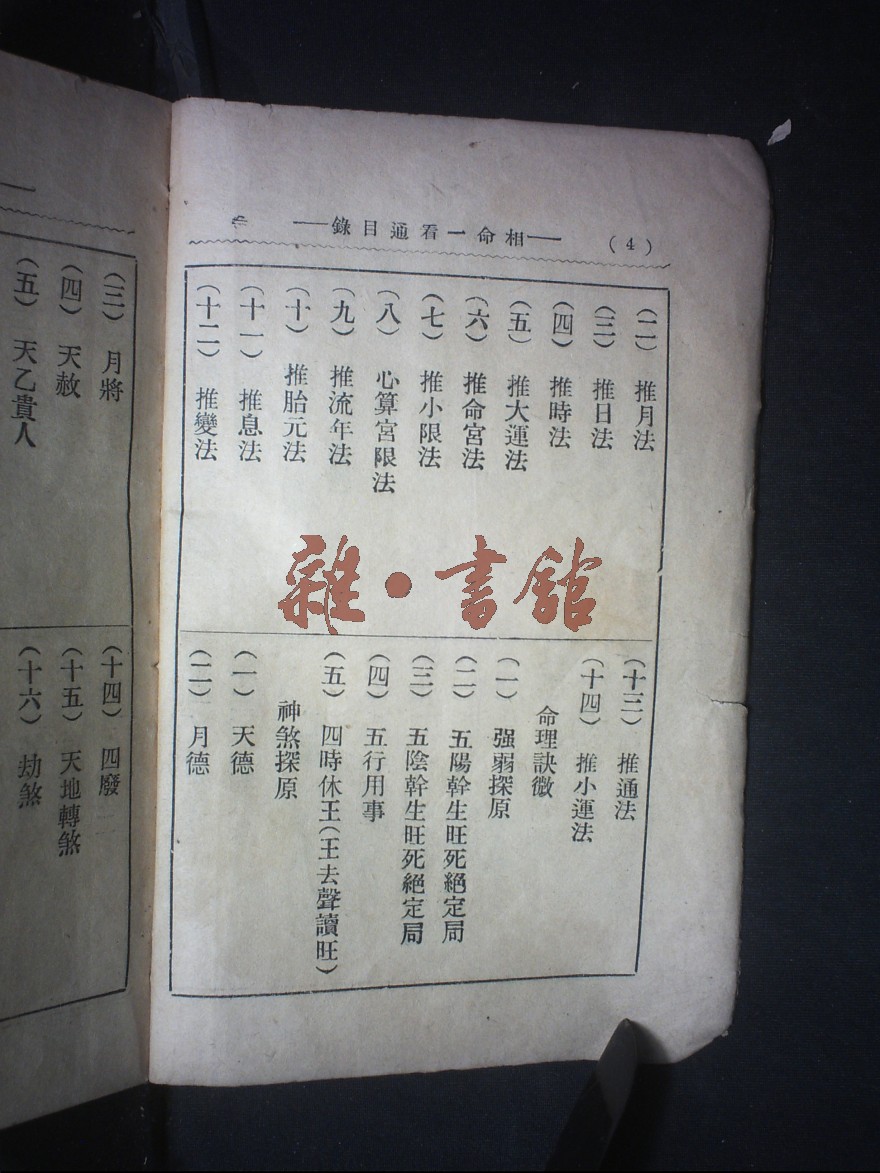 (4)
——相命一看通目錄——
(二) 推月法
(三) 推日法
(四) 推時法
(五) 推大運法
(六) 推命宮法
(七) 推小限法
(八) 心算宮限法
(九) 推流年法
(十) 推胎元法
(十一) 推息法
(十二) 推變法
(十三) 推通法
(十四) 推小運法
命理訣微
(一) 强弱探原
(二) 五陽幹生旺死絕定局
(三) 五陰幹生旺死絕定局
(四) 五行用事
(五) 四時休王(王去聲讀旺)
神煞探原
(一) 天德
(二) 月德
雜·書館
(三) 月將
(四) 天赦
(五) 天乙貴人
(十四) 四廢
(十五) 天地轉煞
(十六) 劫煞